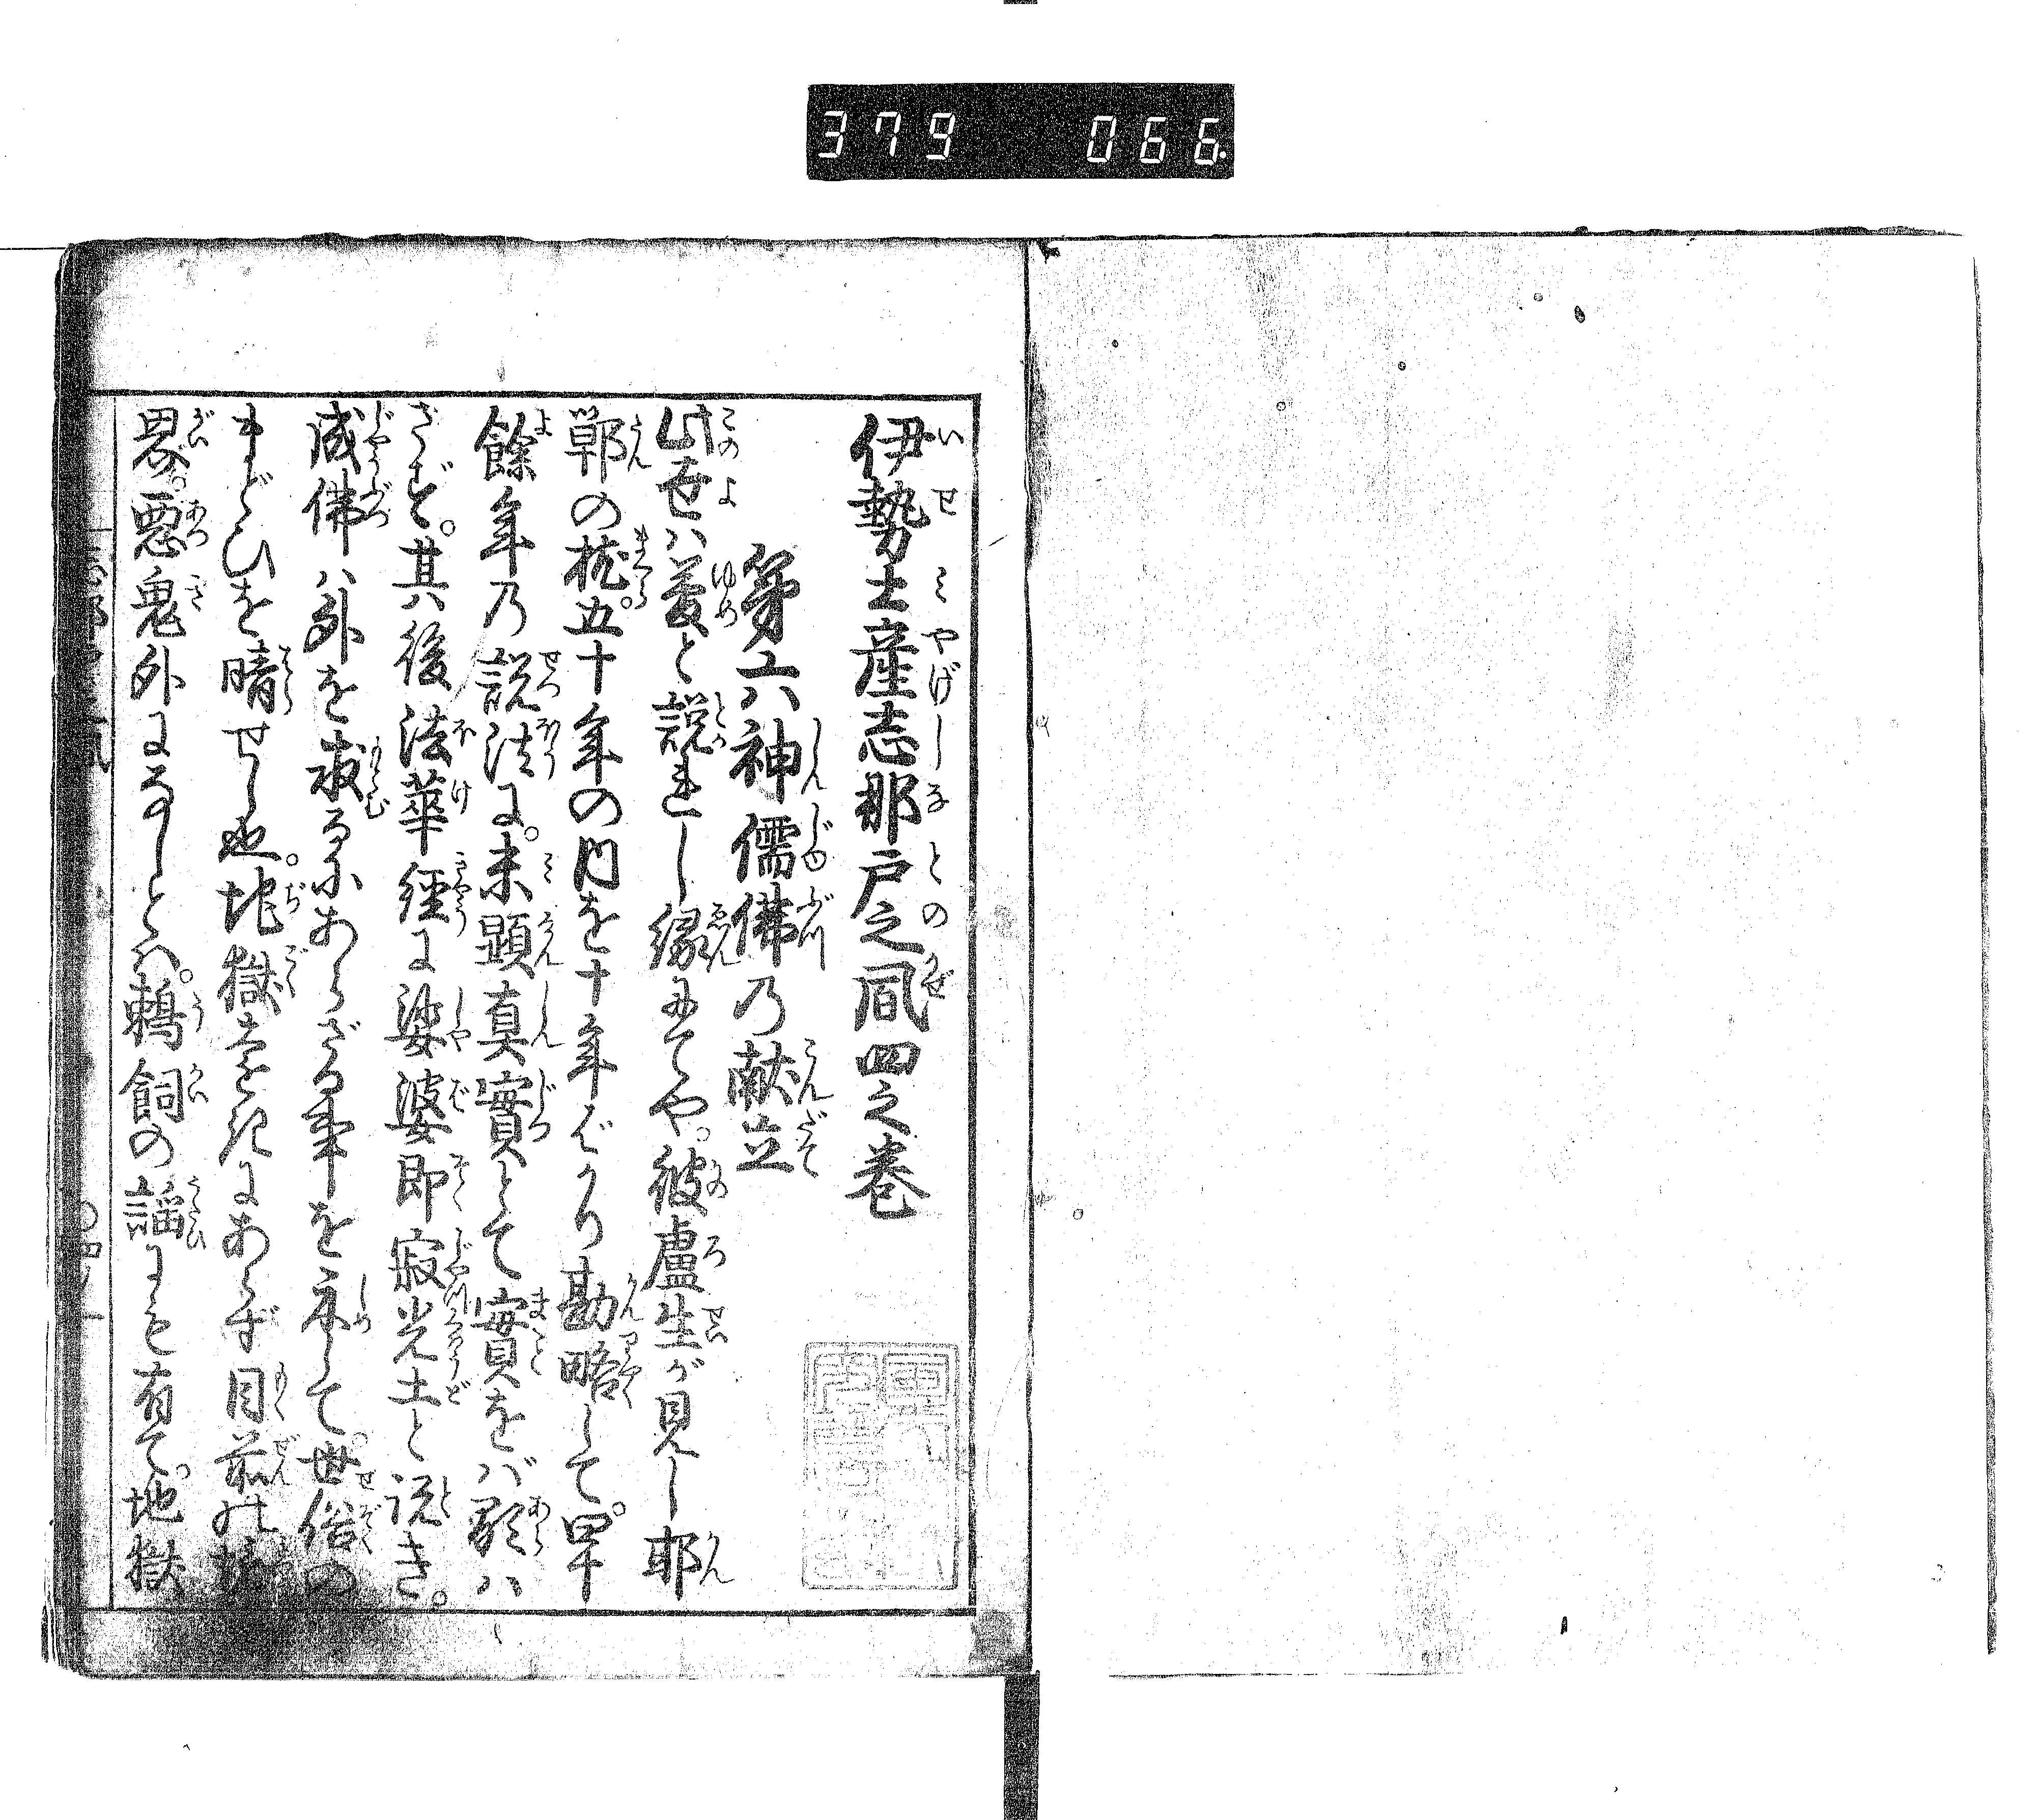 379 066
伊勢土産志那戸之風四之巻
第六神儒佛乃献立
此世ハ夢と説れし縁にてや。彼盧生が見し邯
鄲の枕。五十年の内を十年ばかり勘略して。四十
餘年乃説法に。未顕真實とて實をバ顕ハ
さず。其後法華經に娑婆即寂光土と説き。
成佛ハ外を求るにあらざる事を示して。世俗の
まどひを晴せし也。地獄も遠きにあらず目前の境
界。悪鬼外になしとハ。鵜飼の謡にも有て。地獄